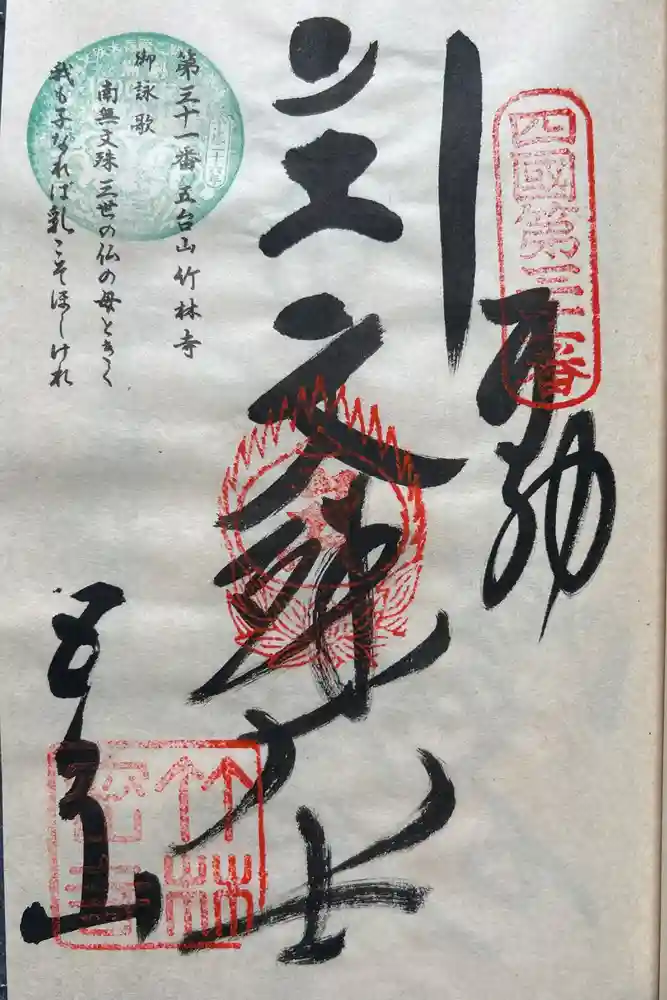 四國第三十一番
奉納
文殊大士
五台山
竹林
第三十一番 五台山竹林寺
御詠歌
南無文殊 三世の仏の母ときく
我も子なれば乳こそほしけれ